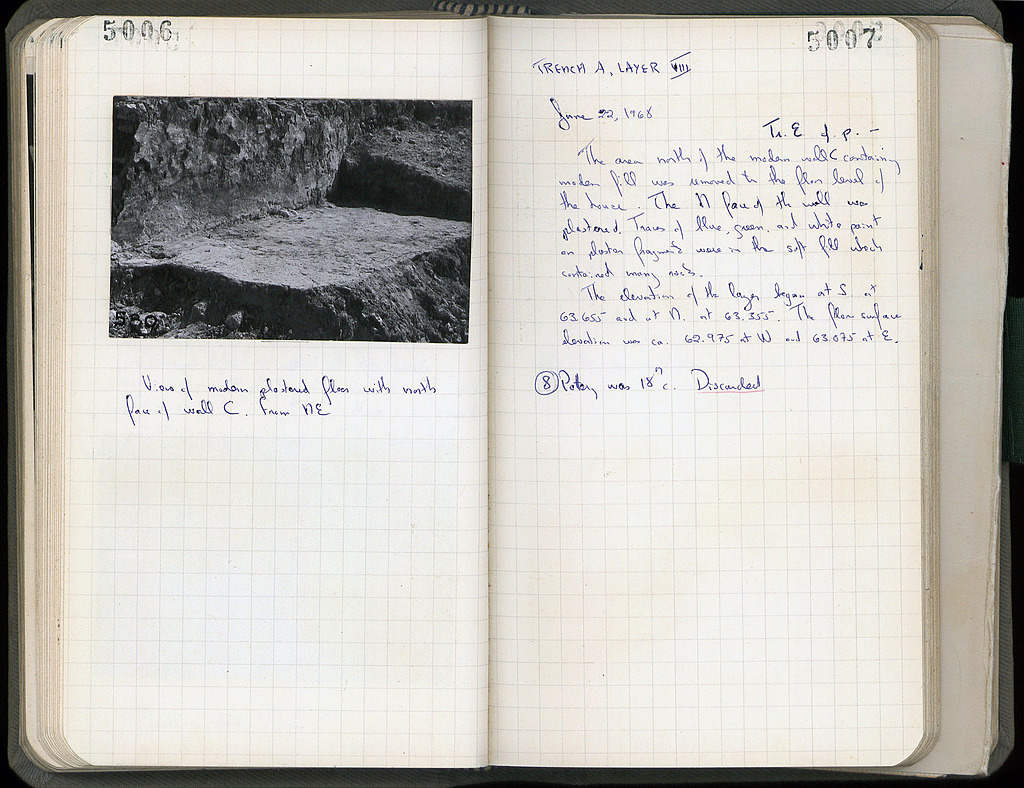 5006
550
View of modern plastered floor with north
face of wall C. From NE
5007
TRENCH A, LAYER VIII
June 22, 1968
Tr. E of p. –
The area north of the modern wall C containing
modern fill was removed to the floor level of
the house. The N face of the wall was
plastered. Traces of blue, green, and white paint
on plaster fragments were in the soft fill which
contained many rocks.
The elevation of the layer began at S. at
63.655 and at N. at 63.355. The floor surface
elevation was ca. 62.975 at W and 63.075 at E.
8 Pottery was 18th c. Discarded